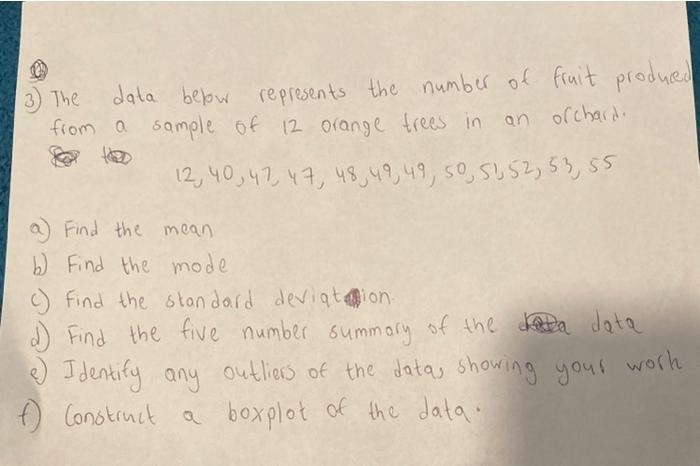 3) The data below represents the number of fruit produced
from a sample of 12 orange trees in an orchard.
12, 40, 47, 47, 48, 49, 49, 50, 51, 52, 53, 55
a) Find the mean
b) Find the mode
c) Find the standard deviation.
d) Find the five number summary of the data
e) Identify any outliers of the data, showing your work
f) Construct a boxplot of the data.